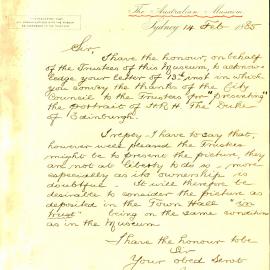 The Australian Museum
Sydney 14 Feb 1885
Sir,
I have the honour, on
behalf of the Trustees of this Museum, to acknow-
ledge your letter of 13th inst in which
you convey the thanks of the City
Council to the Trustees for "Presenting"
the Portrait of H.R.H. The Duke
of Edinburgh.
In reply I have to say that,
however well pleased the Trustees
might be to present the picture, they
are not at liberty to do so, more
especially as its ownership is
doubtful. It will therefore be
desirable to consider the picture as
deposited in the Town Hall "on
trust" being on the same condition
as in the Museum
I have the honour to be
Sir
Your obed Servt